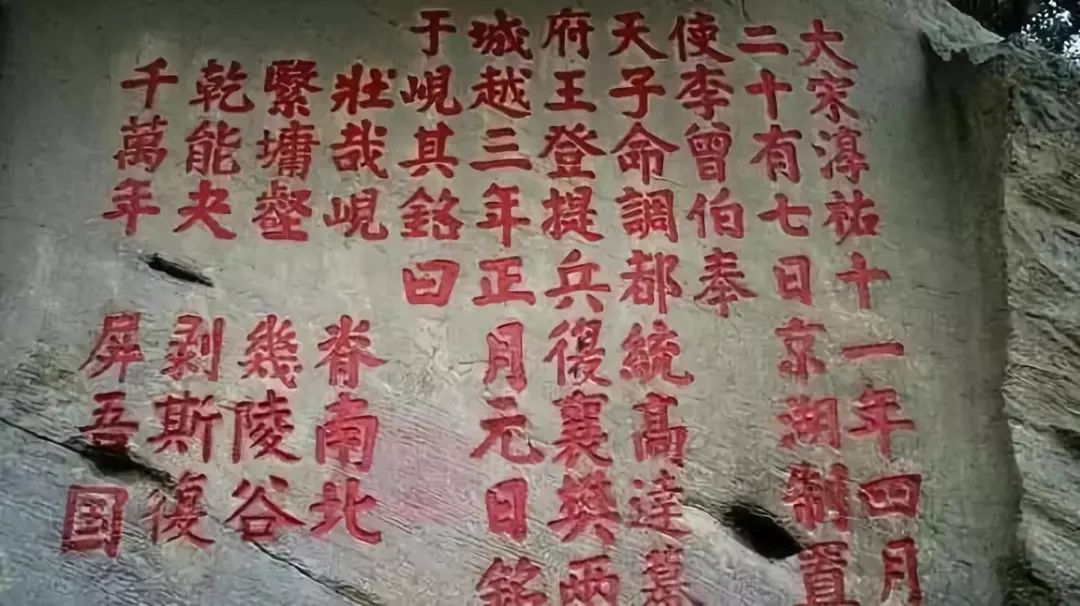 大宋淳祐十一年四月
二十有七日京湖制置
使李曾伯奉
天子命調都統高達幕
府王登提兵復襄樊兩
城越三年正月元日銘
于峴其銘曰
壯哉峴 脊南北
繄墉壑 幾陵谷
乾能夬 剥斯復
千萬年 屏吾国